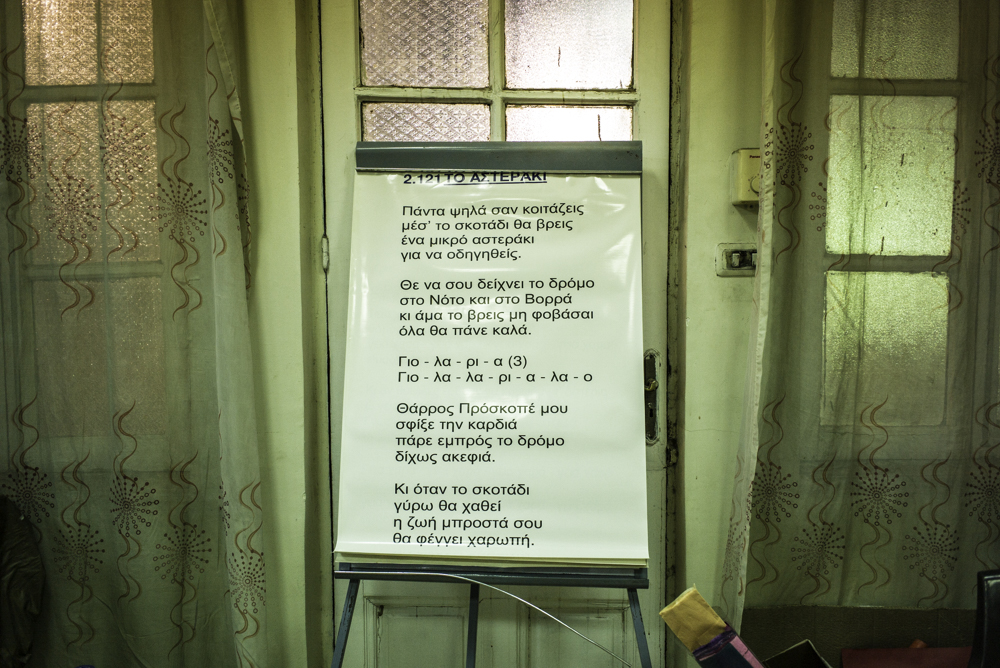 2.121 ΤΟ ΑΣΤΕΡΑΚΙ
Πάντα ψηλά σαν κοιτάζεις
μέσ' το σκοτάδι θα βρεις
ένα μικρό αστεράκι
για να οδηγηθείς.
Θε να σου δείχνει το δρόμο
στο Νότο και στο Βορρά
κι άμα το βρεις μη φοβάσαι
όλα θα πάνε καλά.
Γιο - λα - ρι - α (3)
Γιο - λα - λα - ρι - α - λα - ο
Θάρρος Πρόσκοπέ μου
σφίξε την καρδιά
πάρε εμπρός το δρόμο
δίχως ακεφιά.
Κι όταν το σκοτάδι
γύρω θα χαθεί
η ζωή μπροστά σου
θα φέγγει χαρωπή.